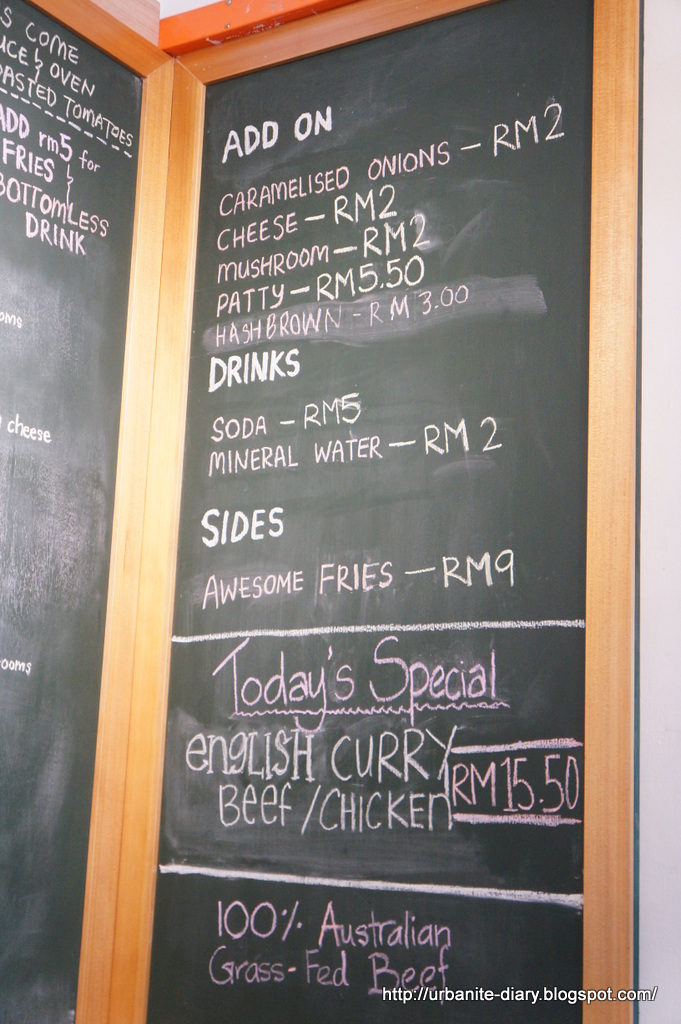 S COME
UCE & OVEN
OASTED TOMATOES
ADD rm5 for
FRIES &
BOTTOMLESS
DRINK
oms
cheese
ooms
ADD ON
CARAMELISED ONIONS - RM2
CHEESE - RM2
MUSHROOM - RM2
PATTY - RM5.50
HASHBROWN - RM 3.00
DRINKS
SODA - RM5
MINERAL WATER - RM 2
SIDES
AWESOME FRIES - RM9
Today's Special
ENGLISH CURRY
BEEF / CHICKEN
RM15.50
100% Australian
Grass-Fed Beef
http://urbanite-diary.blogspot.com/